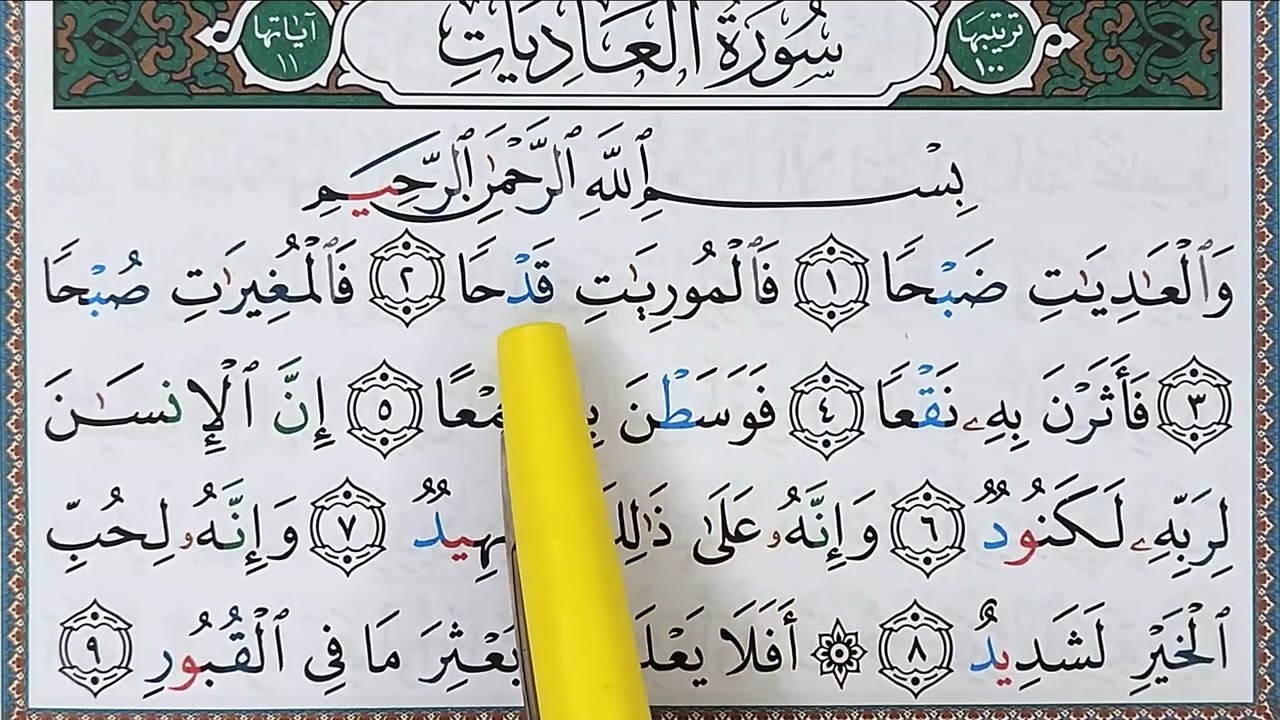 ترتيبها ١٠٠ سُورَةُ العَادِيَاتِ آيَاتها ١١
بِسْمِ ٱللَّهِ ٱلرَّحْمَٰنِ ٱلرَّحِيمِ
وَٱلْعَٰدِيَٰتِ ضَبْحًا ١ فَٱلْمُورِيَٰتِ قَدْحًا ٢ فَٱلْمُغِيرَٰتِ صُبْحًا
٣ فَأَثَرْنَ بِهِۦ نَقْعًا ٤ فَوَسَطْنَ ٥ إِنَّ ٱلْإِنسَٰنَ
لِرَبِّهِۦ لَكَنُودٌ ٦ وَإِنَّهُۥ عَلَىٰ ٧ وَإِنَّهُۥ لِحُبِّ
ٱلْخَيْرِ لَشَدِيدٌ ٨ ۞ أَفَلَا مَا فِي ٱلْقُبُورِ ٩